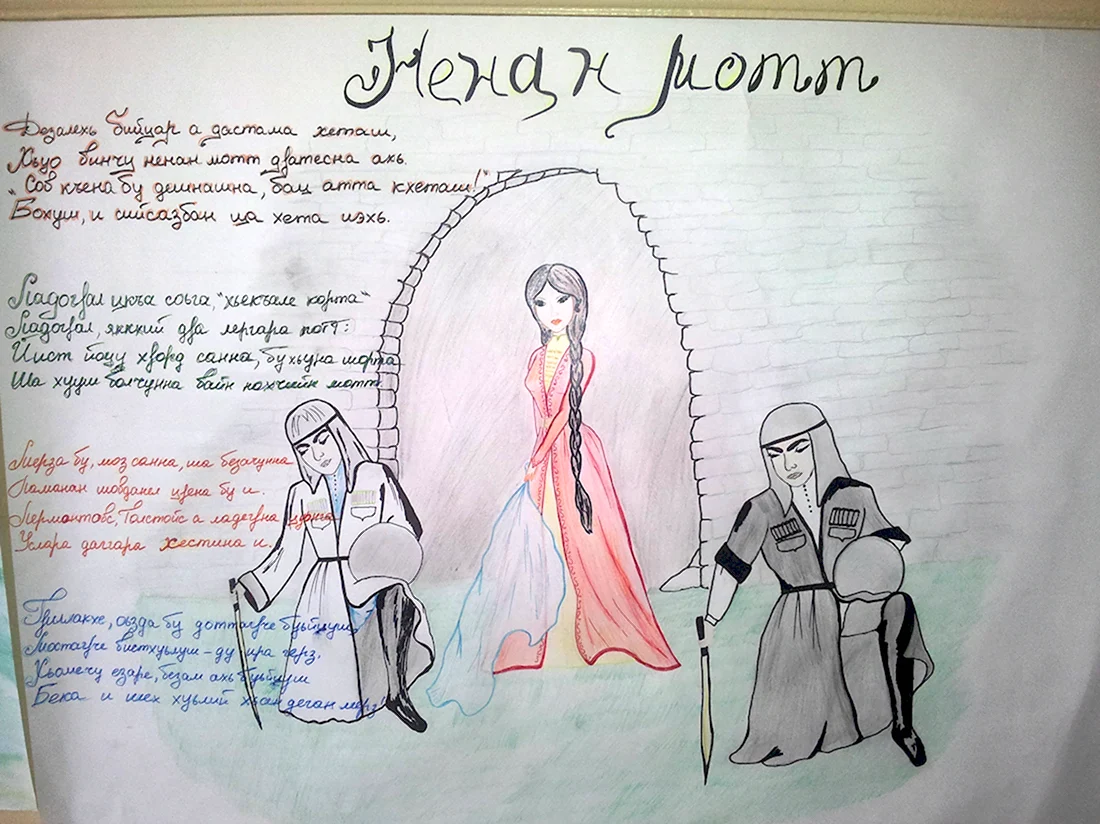 Ненан мотт
Дозалехь бийцар а дастама хеташ,
Хьцо винчу ненан мотт дӏатесна ахь.
"Сов къена бу дешнашна, бац атта кхеташ!"
Бохуш, и сийсазбан ца хета иэхь.
Ладогӏал цкъа соьга, "хьекъале корта"
Ладогӏал, яккхий дӏа лергара потт:
Йист йоцу хӏорд санна, бу хьуна шорта
Ша хууш волчунна вайн нохчийн мотт.
Мерза бу, моз санна, ша безачунна
Ламанан шовданел цӏена бу и.
Лермонтовс, Толстойс а ладегӏна цуьнга
Услара даггара хестина и.
Гӏиллакхе, оьзда бу доттагӏче буьйцуш,
Мостагӏче вистхуьлуш – ду ира герз.
Хьомечу езаре, безам ахь буьйцуш
Бека и шех хуьлий хьан деган мерз!